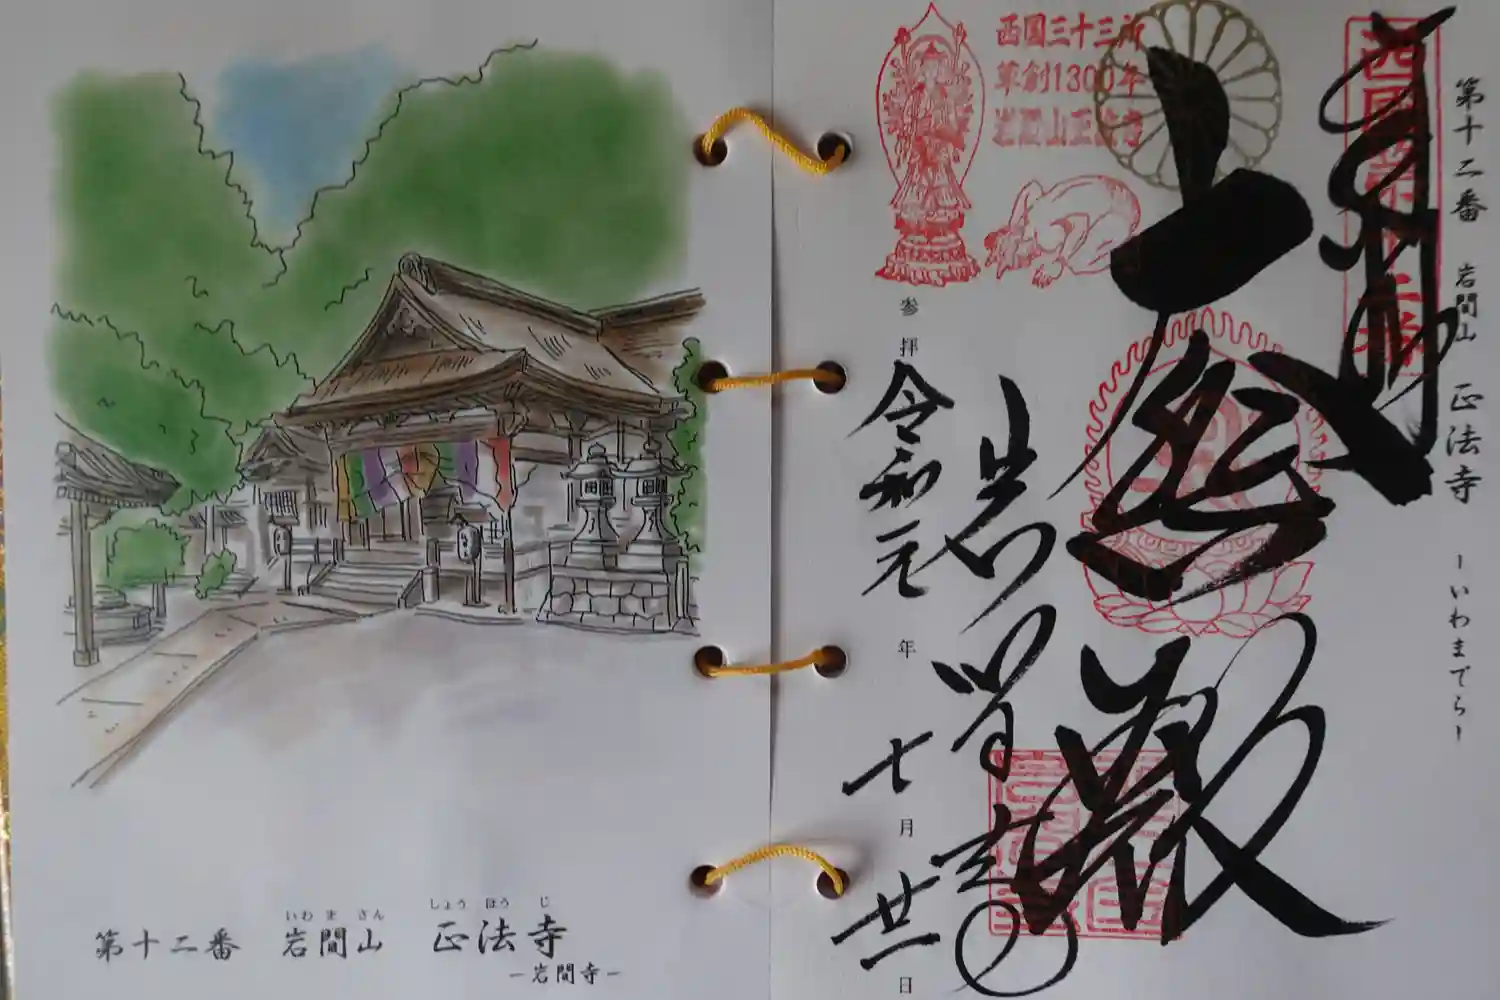 いわ ま さん しょう ほう じ
第十二番 岩間山 正法寺
－岩間寺－
西國三十三所
草創1300年
岩間山正法寺
第十二番 岩間山 正法寺 －いわまでら－
大悲殿
岩間寺
参拝 令和元年 七月 廿一日